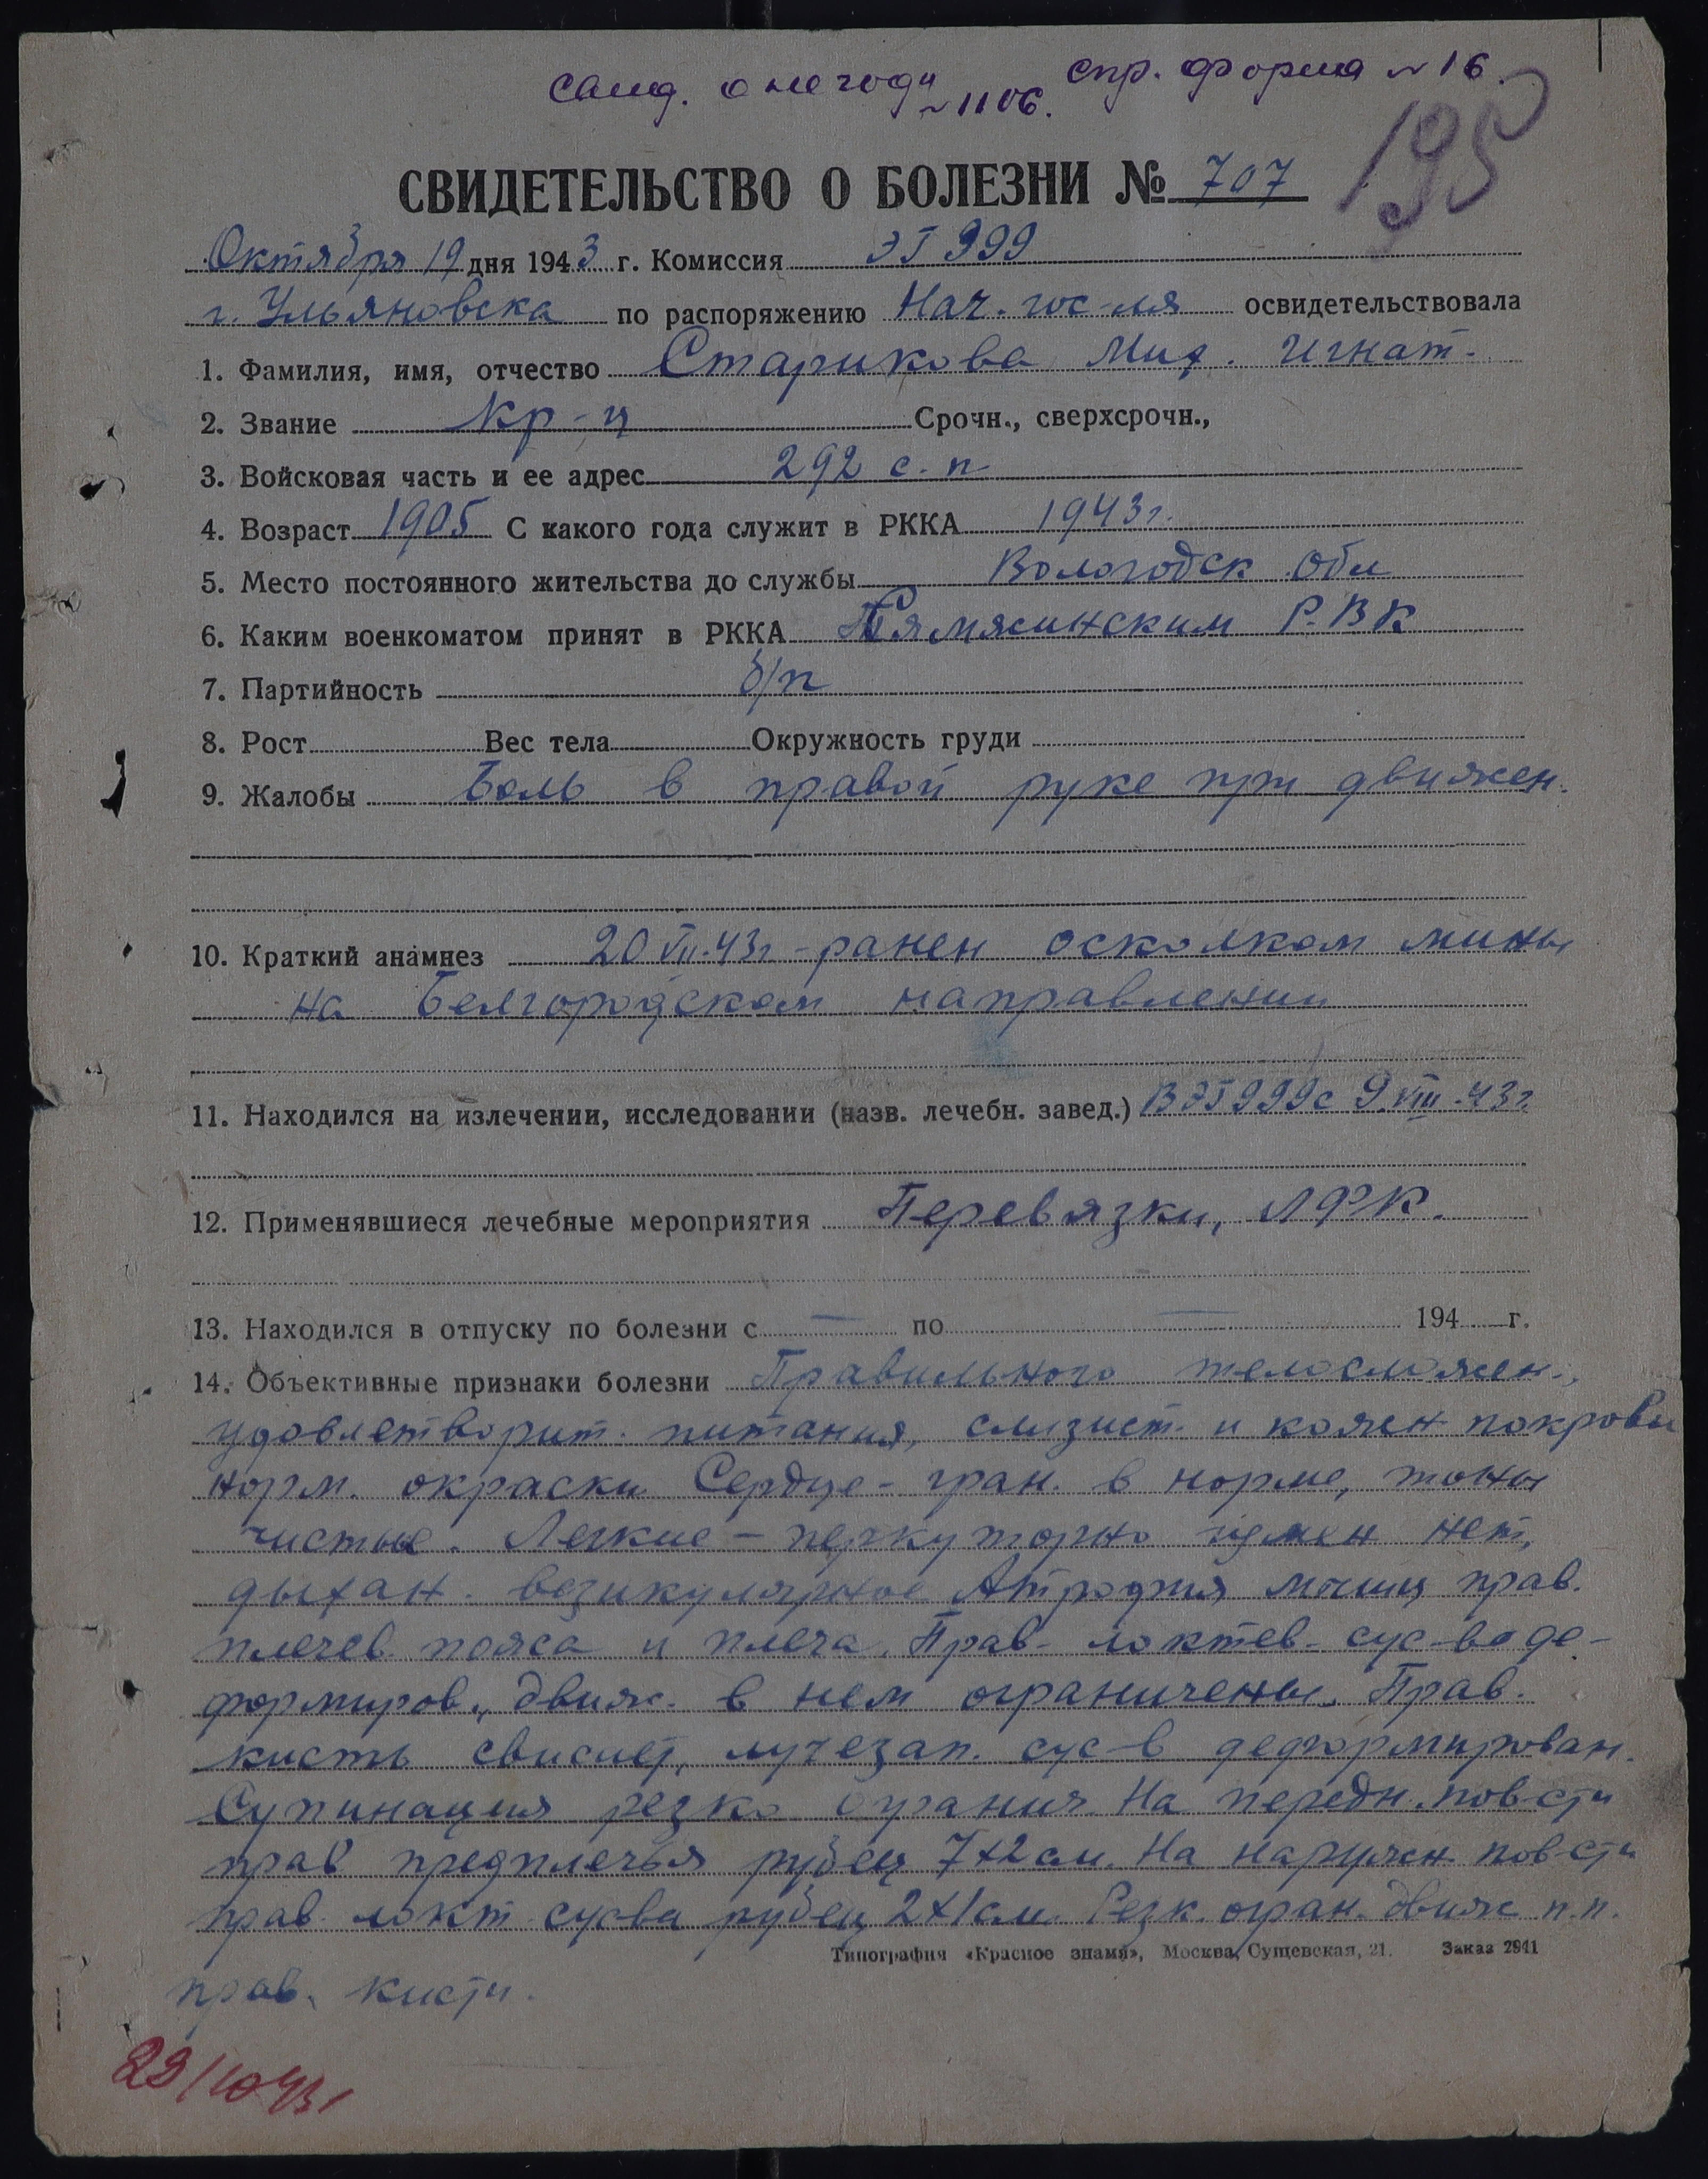 свид. о негодн №1106. спр. форма №16.
195
СВИДЕТЕЛЬСТВО О БОЛЕЗНИ № 707
Октября 19 дня 1943 г. Комиссия ЭГ 999
г. Ульяновска по распоряжению Нач. гос-ля освидетельствовала
1. Фамилия, имя, отчество Старикова Мих. Игнат.
2. Звание кр-ц Срочн., сверхсрочн.,
3. Войсковая часть и ее адрес 292 с.п
4. Возраст 1905 С какого года служит в РККА 1943г.
5. Место постоянного жительства до службы Вологодск обл
6. Каким военкоматом принят в РККА Р.В.К
7. Партийность б/п
8. Рост Вес тела Окружность груди
9. Жалобы Боль в правой руке при движен.
10. Краткий анамнез 20 VII.43г - ранен осколком мины
на Белгородском направлении
11. Находился на излечении, исследовании (назв. лечебн. завед.) В ЭГ 999 с 9.VIII.43г.
12. Применявшиеся лечебные мероприятия Перевязки, ЛФК.
13. Находился в отпуску по болезни с — по — 194 г.
14. Объективные признаки болезни Правильного телосложен.,
удовлетворит. питания, слизист. и кожн покровы
норм. окраски Сердце - гран. в норме, тоны
чистые. Легкие - перкуторно измен нет,
дыхан. везикулярное Атрофия мышц прав.
плечев пояса и плеча. Прав- локтев- сус-в де-
формиров., движ. в нем ограничены. Прав.
кисть свисает, лучезап. сус-в деформирован.
Супинация резко огранич На передн. пов-сти
прав предплечья рубец 7х2 см. На наружн пов-сти
прав локт сус-ва рубец 2х1 см. Резк. огран. движ п.п.
Типография «Красное знамя», Москва, Сущевская, 21. Заказ 2941
прав. кисти.
29/10 43г